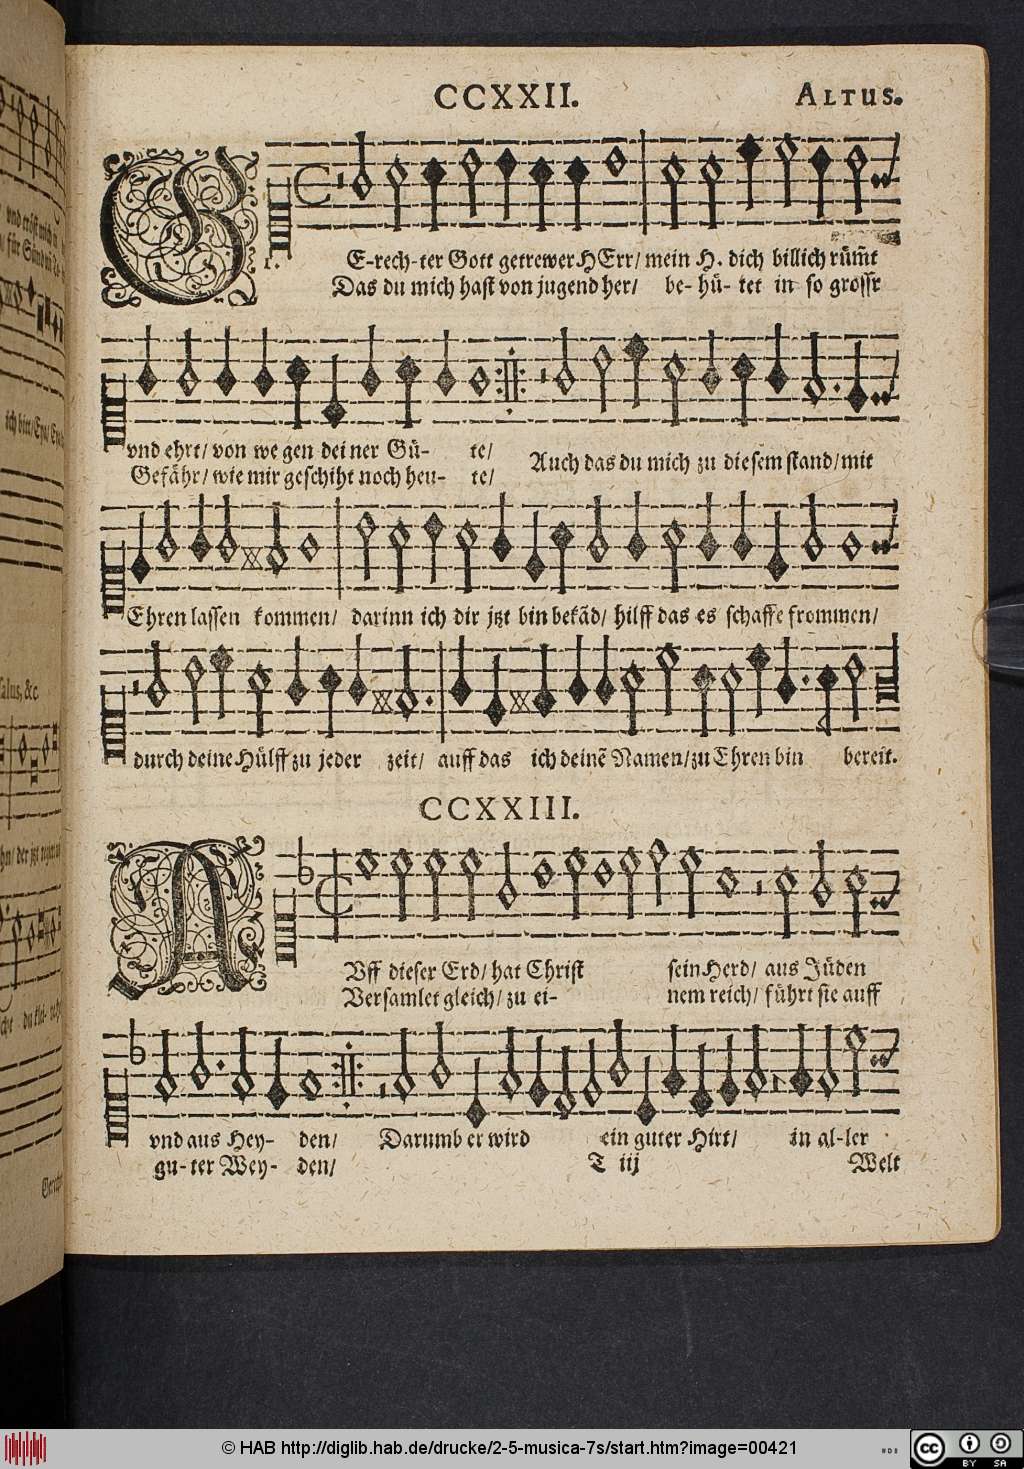 CCXXII.
ALTUS.
GE-rech-ter Gott getrewer HErr/ mein H. dich billich rům̃t
Das du mich hast von jugend her/ be-hü-tet in so grosser
vnd ehrt/ von we gen dei ner Gü- te/
Gefåhr/ wie mir geschiht noch heu- te/
Auch das du mich zu diesem stand/ mit
Ehren lassen kommen/ darinn ich dir jtzt bin bekãd/ hilff das es schaffe frommen/
durch deine Hůlff zu jeder zeit/ auff das ich deinẽ Namen/ zu Ehren bin bereit.
CCXXIII.
AVff dieser Erd/ hat Christ sein Herd/ aus Jůden
Versamlet gleich/ zu ei- nem reich/ fůhrt sie auff
vnd aus Hey- den/ Darumb er wird ein guter Hirt/ in al-ler
gu-ter Wey- den/
T iij
Welt
© HAB http://diglib.hab.de/drucke/2-5-musica-7s/start.htm?image=00421
cc BY SA